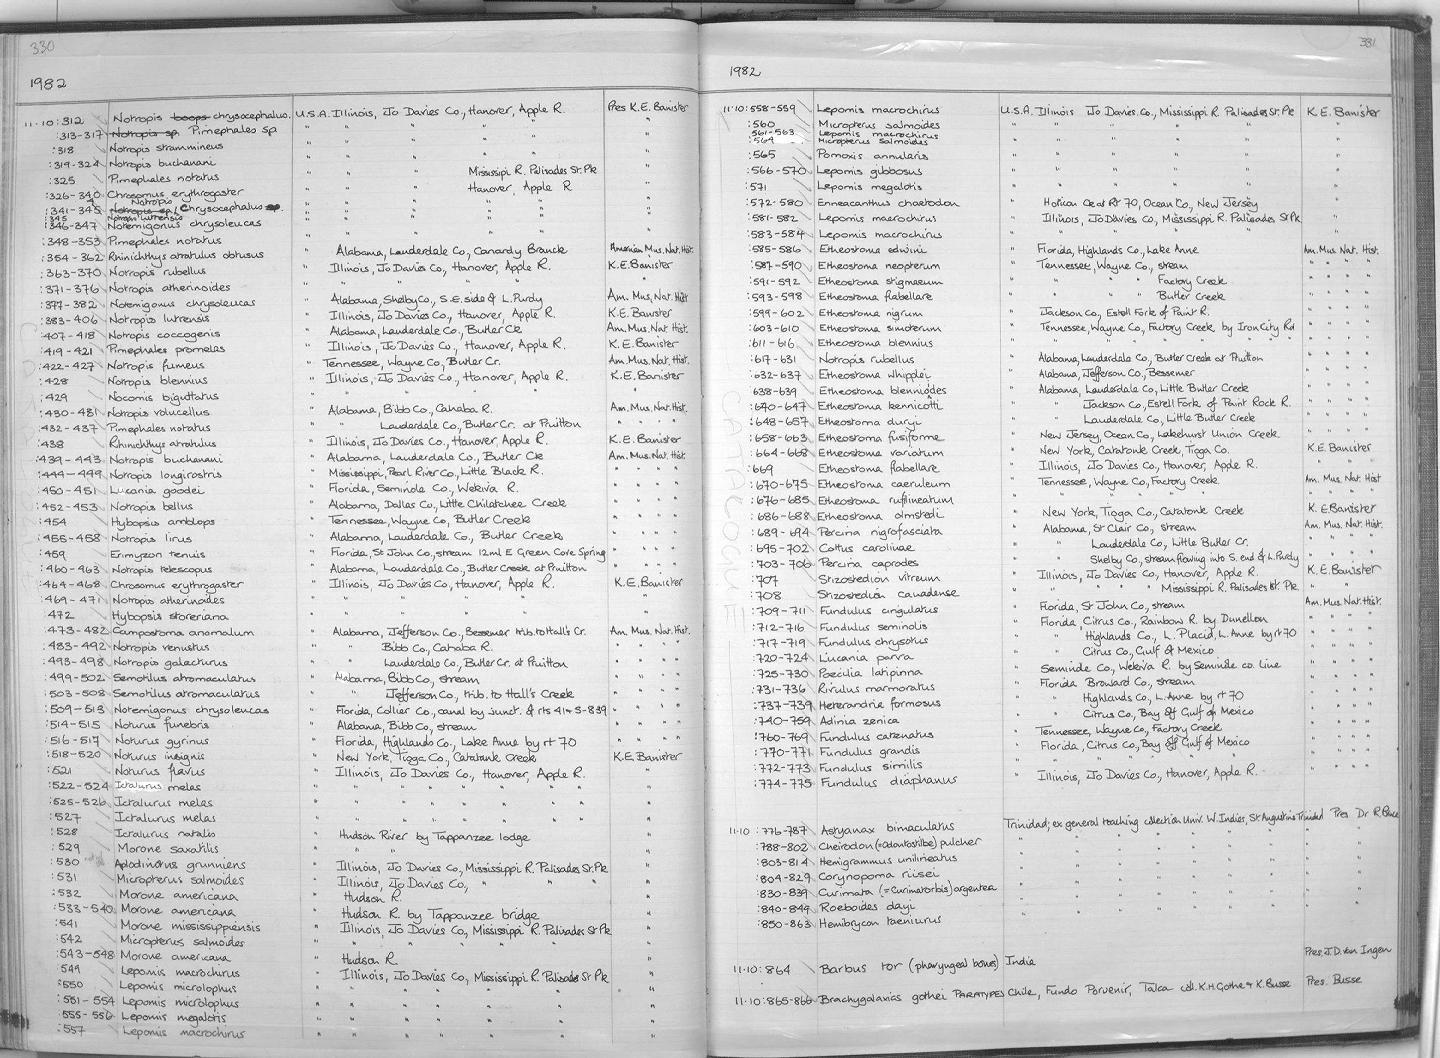 330
1982
11.10:312 Notropis boops chrysocephalus. U.S.A. Illinois, Jo Davies Co, Hanover, Apple R. Pres K.E. Banister
:313-317 Notropis sp. Pimephales sp. " " " " "
:318 Notropis stramineus " " " " "
:319-324 Notropis buchanani " " " " "
:325 Pimephales notatus " " " Mississippi R. Palisades St. Pk "
:326-340 Chrosomus erythrogaster " " " Hanover, Apple R "
:341-345 Notropis sp. Notropis Chrysocephalus sp. " " " " "
:345 Notropis lutrensis
:346-347 Notemigonus chrysoleucas " " " " "
:348-353 Pimephales notatus " " " " "
:354-362 Rhinichthys atratulus obtusus " Alabama, Lauderdale Co, Canardy Branck American Mus. Nat. Hist.
:363-370 Notropis rubellus " Illinois, Jo Davies Co, Hanover, Apple R. K.E. Banister
:371-376 Notropis atherinoides " " " " "
:377-382 Notemigonus chrysoleucas " Alabama, Shelby Co., S.E. side of L. Purdy Am. Mus. Nat. Hist
:383-406 Notropis lutrensis " Illinois, Jo Davies Co, Hanover, Apple R. K.E. Banister
:407-418 Notropis coccogenis " Alabama, Lauderdale Co, Butler Ck Am. Mus. Nat Hist.
:419-421 Pimephales promelas " Illinois, Jo Davies Co, Hanover, Apple R. K.E. Banister
:422-427 Notropis fumeus " Tennessee, Wayne Co, Butler Cr. Am. Mus. Nat Hist.
:428 Notropis blennius " Illinois, Jo Davies Co, Hanover, Apple R. K.E. Banister
:429 Nocomis biguttatus " " " " "
:430-431 Notropis volucellus " Alabama, Bibb Co, Cahaba R. Am. Mus. Nat. Hist.
:432-437 Pimephales notatus " " Lauderdale Co, Butler Cr. at Pruitton " " " "
:438 Rhinichthys atratulus " Illinois, Jo Davies Co, Hanover, Apple R. K.E. Banister
:439-443 Notropis buchanani " Alabama, Lauderdale Co, Butler Ck Am. Mus. Nat. Hist.
:444-449 Notropis longirostris " Mississippi, Pearl River Co, Little Black R. " " " "
:450-451 Lucania goodei " Florida, Seminole Co, Wekiva R. " " " "
:452-453 Notropis bellus " Alabama, Dallas Co, Little Chilatchee Creek " " " "
:454 Hybopsis amblops " Tennessee, Wayne Co, Butler Creek " " " "
:455-458 Notropis lirus " Alabama, Lauderdale Co, Butler Creek " " " "
:459 Erimyzon tenuis " Florida, St John Co, stream 12ml E Green Cove Spring " " " "
:460-463 Notropis telescopus " Alabama, Lauderdale Co, Butler Creek at Pruitton " " " "
:464-468 Chrosomus erythrogaster " Illinois, Jo Davies Co, Hanover, Apple R. K.E. Banister
:469-471 Notropis atherinoides " " " " "
:472 Hybopsis storeriana " " " " "
:473-482 Campostoma anomalum " Alabama, Jefferson Co, Bessemer trib. to Hall's Cr. Am. Mus. Nat. Hist.
:483-492 Notropis venustus " " Bibb Co, Cahaba R. " " " "
:493-498 Notropis galacturus " " Lauderdale Co, Butler Cr. at Pruitton " " " "
:499-502 Semotilus atromaculatus " Alabama, Bibb Co, stream " " " "
:503-508 Semotilus atromaculatus " " Jefferson Co, trib. to Hall's Creek " " " "
:509-513 Notemigonus chrysoleucas " Florida, Collier Co, canal by junct. of rts 41 & S-839 " " " "
:514-515 Noturus funebris " Alabama, Bibb Co, stream " " " "
:516-517 Noturus gyrinus " Florida, Highlands Co, Lake Anne by rt 70 " " " "
:518-520 Noturus insignis " New York, Tioga Co, Catatonk Creek K.E. Banister
:521 Noturus flavus " Illinois, Jo Davies Co, Hanover, Apple R. "
:522-524 Ictalurus melas " " " " "
:525-526 Ictalurus melas " " " " "
:527 Ictalurus melas " " " " "
:528 Ictalurus natalis " Hudson River by Tappanzee lodge "
:529 Morone saxatilis " " " " "
:530 Aplodinotus grunniens " Illinois, Jo Davies Co, Mississippi R. Palisades St. Pk "
:531 Micropterus salmoides " Illinois, Jo Davies Co, " " "
:532 Morone americana " Hudson R. "
:533-540 Morone americana " Hudson R. by Tappanzee bridge "
:541 Morone mississippiensis " Illinois, Jo Davies Co, Mississippi R. Palisades St Pk "
:542 Micropterus salmoides " " " " "
:543-548 Morone americana " Hudson R. "
:549 Lepomis macrochirus " Illinois, Jo Davies Co, Mississippi R. Palisades St Pk "
:550 Lepomis microlophus " " " " "
:551-554 Lepomis microlophus " " " " "
:555-556 Lepomis megalotis " " " " "
:557 Lepomis macrochirus " " " " "
331
1982
11.10:558-559 Lepomis macrochirus U.S.A. Illinois Jo Davies Co, Mississippi R. Palisades St. Pk K.E. Banister
:560 Micropterus salmoides " " " " "
:561-563 Lepomis macrochirus " " " " "
:564 Micropterus salmoides " " " " "
:565 Pomoxis annularis " " " " "
:566-570 Lepomis gibbosus " " " " "
:571 Lepomis megalotis " " " " "
:572-580 Enneacanthus chaetodon " Rt 70, Ocean Co, New Jersey "
:581-582 Lepomis macrochirus " Illinois, Jo Davies Co, Mississippi R. Palisades St Pk "
:583-584 Lepomis macrochirus " " " " "
:585-586 Etheostoma edwini " Florida, Highlands Co, Lake Anne Am. Mus. Nat. Hist.
:587-590 Etheostoma neopterum " Tennessee, Wayne Co, stream " " " "
:591-592 Etheostoma stigmaeum " " " Factory Creek " " " "
:593-598 Etheostoma flabellare " " " Butler Creek " " " "
:599-602 Etheostoma nigrum " Jackson Co, Estell Fork of Paint R. " " " "
:603-610 Etheostoma simoterum " Tennessee, Wayne Co, Factory Creek by Iron City Rd " " " "
:611-616 Etheostoma blennius " " " " " " " "
:617-631 Notropis rubellus " Alabama, Lauderdale Co, Butler Creek at Pruitton " " " "
:632-637 Etheostoma whipplei " Alabama, Jefferson Co, Bessemer " " " "
638-639 Etheostoma blennioides " Alabama, Lauderdale Co, Little Butler Creek " " " "
:640-647 Etheostoma kennicotti " " Jackson Co, Estell Fork of Paint Rock R. " " " "
:648-657 Etheostoma duryi " " Lauderdale Co, Little Butler Creek " " " "
:658-663 Etheostoma fusiforme " New Jersey, Ocean Co, Lakehurst Union Creek " " " "
:664-668 Etheostoma variatum " New York, Catatonk Creek, Tioga Co. K.E. Banister
:669 Etheostoma flabellare " Illinois, Jo Davies Co, Hanover, Apple R. " "
:670-675 Etheostoma caeruleum " Tennessee, Wayne Co, Factory Creek Am. Mus. Nat. Hist
:676-685 Etheostoma rufilineatum " " " " " " " "
:686-688 Etheostoma olmstedi " New York, Tioga Co, Catatonk Creek K. E Banister
:689-694 Percina nigrofasciata " Alabama, St Clair Co, stream Am. Mus. Nat. Hist.
:695-702 Cottus carolinae " " Lauderdale Co, Little Butler Cr. " " " "
:703-706 Percina caprodes " " Shelby Co, stream flowing into S. end of L. Purdy " " " "
:707 Stizostedion vitreum " Illinois, Jo Davies Co, Hanover, Apple R. K.E. Banister
:708 Stizostedion canadense " " " Mississippi R. Palisades St. Pk "
:709-711 Fundulus cingulatus " Florida, St John Co, stream Am. Mus. Nat. Hist.
:712-716 Fundulus seminolis " Florida, Citrus Co, Rainbow R. by Dunellon " " " "
:717-719 Fundulus chrysotus " " Highlands Co, L. Placid, L. Anne by rt 70 " " " "
:720-724 Lucania parva " " Citrus Co, Gulf of Mexico " " " "
:725-730 Poecilia latipinna " Seminole Co, Wekiva R. by Seminole co. Line " " " "
:731-736 Rivulus marmoratus " Florida Broward Co, stream " " " "
:737-739 Heterandria formosus " " Highlands Co, L. Anne by rt 70 " " " "
:740-759 Adinia zenica " " Citrus Co, Bay of Gulf of Mexico " " " "
:760-769 Fundulus catenatus " Tennessee, Wayne Co, Factory Creek " " " "
:770-771 Fundulus grandis " Florida, Citrus Co, Bay off Gulf of Mexico " " " "
:772-773 Fundulus similis " " " " " " " "
:774-775 Fundulus diaphanus " Illinois, Jo Davies Co, Hanover, Apple R.
11.10:776-787 Astyanax bimaculatus Trinidad; ex general teaching collection Univ. W. Indies, St Augustine Trinidad Pres Dr R. Bruce
:788-802 Cheirodon (=odontostilbe) pulcher " " " " "
:803-814 Hemigrammus unilineatus " " " " "
:804-829 Corynopoma riisei " " " " "
:830-839 Curimata (=Curimatorbis) argentea " " " " "
:840-849 Roeboides dayi " " " " "
:850-863 Hemibrycon taeniurus " " " " "
11.10:864 Barbus tor (pharyngeal bones) India Pres. J.D. van Ingen
11.10:865-866 Brachygalaxias gothei PARATYPES Chile, Fundo Porvenir, Talca coll. K.H. Gothe & K. Busse Pres. Busse